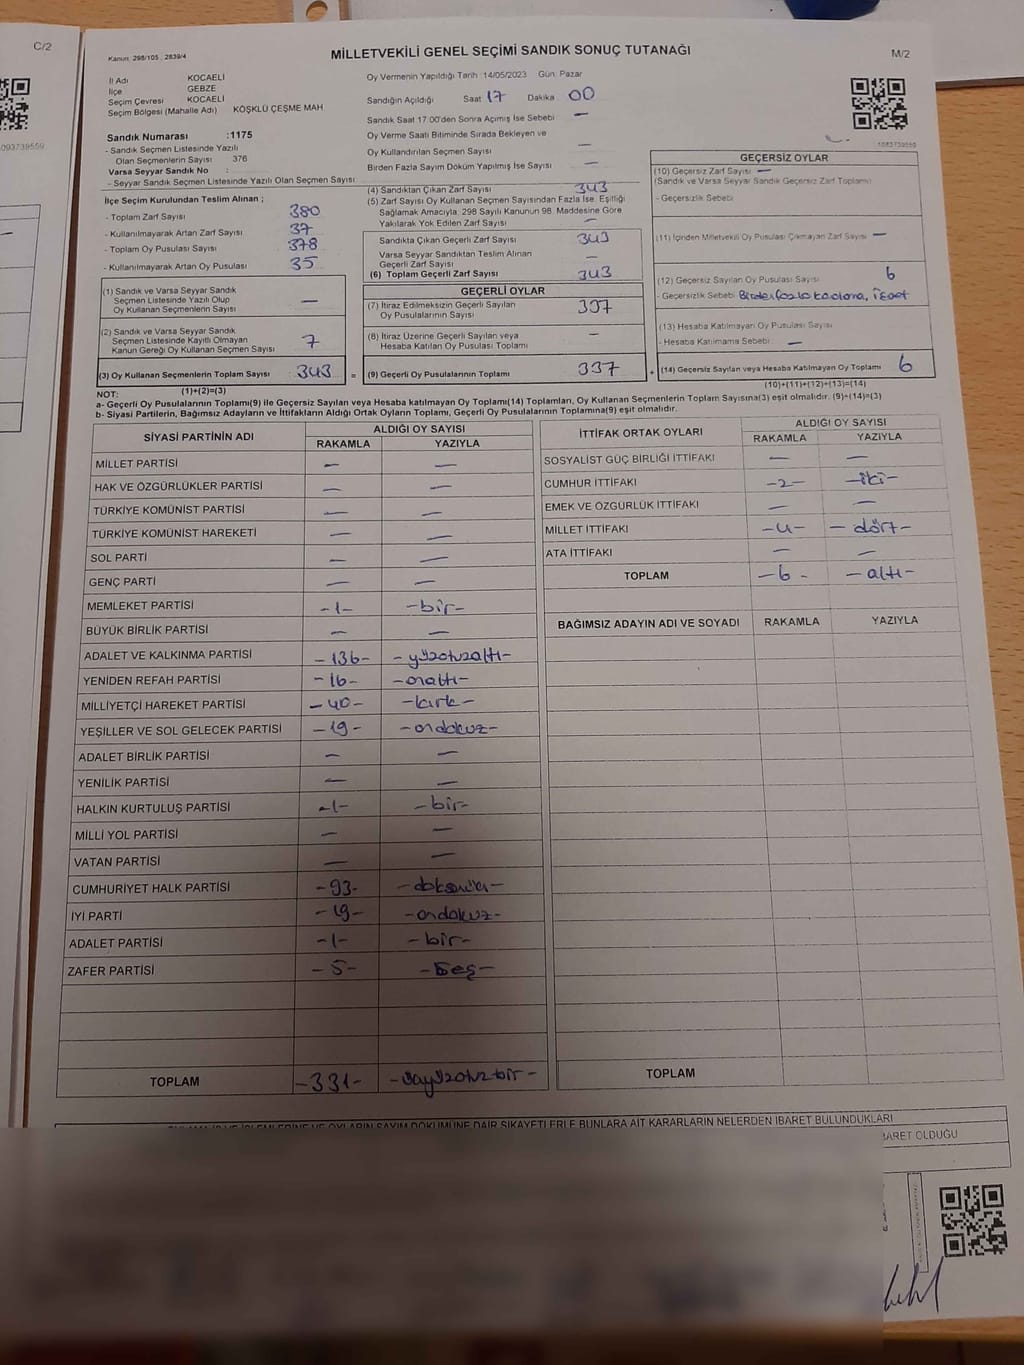 C/2
093739559
Kanun: 298/105 , 2839/4
MİLLETVEKİLİ GENEL SEÇİMİ SANDIK SONUÇ TUTANAĞI
M/2
İl Adı KOCAELİ
İlçe GEBZE
Seçim Çevresi KOCAELİ
Seçim Bölgesi (Mahalle Adı) KÖŞKLÜ ÇEŞME MAH
Oy Vermenin Yapıldığı Tarih 14/05/2023 Gün: Pazar
Sandığın Açıldığı Saat 17 Dakika 00
Sandık Saat 17:00'den Sonra Açılmış İse Sebebi —
Oy Verme Saati Bitiminde Sırada Bekleyen ve
Oy Kullandırılan Seçmen Sayısı —
Birden Fazla Sayım Döküm Yapılmış İse Sayısı —
1083739559
Sandık Numarası :1175
- Sandık Seçmen Listesinde Yazılı
Olan Seçmenlerin Sayısı 376
Varsa Seyyar Sandık No :
- Seyyar Sandık Seçmen Listesinde Yazılı Olan Seçmen Sayısı:
İlçe Seçim Kurulundan Teslim Alınan ;
- Toplam Zarf Sayısı 380
- Kullanılmayarak Artan Zarf Sayısı 37
- Toplam Oy Pusulası Sayısı 378
- Kullanılmayarak Artan Oy Pusulası 35
(1) Sandık ve Varsa Seyyar Sandık
Seçmen Listesinde Yazılı Olup
Oy Kullanan Seçmenlerin Sayısı —
(2) Sandık ve Varsa Seyyar Sandık
Seçmen Listesinde Kayıtlı Olmayan
Kanun Gereği Oy Kullanan Seçmen Sayısı 7
(3) Oy Kullanan Seçmenlerin Toplam Sayısı : 343 =
(1)+(2)=(3)
(4) Sandıktan Çıkan Zarf Sayısı 343
(5) Zarf Sayısı Oy Kullanan Seçmen Sayısından Fazla İse, Eşitliği
Sağlamak Amacıyla; 298 Sayılı Kanunun 98. Maddesine Göre
Yakılarak Yok Edilen Zarf Sayısı —
Sandıkta Çıkan Geçerli Zarf Sayısı 343
Varsa Seyyar Sandıktan Teslim Alınan
Geçerli Zarf Sayısı —
(6) Toplam Geçerli Zarf Sayısı 343
GEÇERLİ OYLAR
(7) İtiraz Edilmeksizin Geçerli Sayılan
Oy Pusulalarının Sayısı 337
(8) İtiraz Üzerine Geçerli Sayılan veya
Hesaba Katılan Oy Pusulası Toplamı —
(9) Geçerli Oy Pusulalarının Toplamı 337 +
GEÇERSİZ OYLAR
(10) Geçersiz Zarf Sayısı —
(Sandık ve Varsa Seyyar Sandık Geçersiz Zarf Toplamı)
- Geçersizlik Sebebi
(11) İçinden Milletvekili Oy Pusulası Çıkmayan Zarf Sayısı —
(12) Geçersiz Sayılan Oy Pusulası Sayısı 6
- Geçersizlik Sebebi Birden fazla
(13) Hesaba Katılmayan Oy Pusulası Sayısı
- Hesaba Katılmama Sebebi —
(14) Geçersiz Sayılan veya Hesaba Katılmayan Oy Toplamı 6
(10)+(11)+(12)+(13)=(14)
NOT:
a- Geçerli Oy Pusulalarının Toplamı(9) ile Geçersiz Sayılan veya Hesaba katılmayan Oy Toplamı(14) Toplamları, Oy Kullanan Seçmenlerin Toplam Sayısına(3) eşit olmalıdır. (9)+(14)=(3)
b- Siyasi Partilerin, Bağımsız Adayların ve İttifakların Aldığı Ortak Oyların Toplamı, Geçerli Oy Pusulalarının Toplamına(9) eşit olmalıdır.
SİYASİ PARTİNİN ADI ALDIĞI OY SAYISI
RAKAMLA YAZIYLA
MİLLET PARTİSİ — —
HAK VE ÖZGÜRLÜKLER PARTİSİ — —
TÜRKİYE KOMÜNİST PARTİSİ — —
TÜRKİYE KOMÜNİST HAREKETİ — —
SOL PARTİ — —
GENÇ PARTİ — —
MEMLEKET PARTİSİ -1- -bir-
BÜYÜK BİRLİK PARTİSİ — —
ADALET VE KALKINMA PARTİSİ -136- -yüzotuzaltı-
YENİDEN REFAH PARTİSİ -16- -onaltı-
MİLLİYETÇİ HAREKET PARTİSİ -40- -kırk-
YEŞİLLER VE SOL GELECEK PARTİSİ -19- -ondokuz-
ADALET BİRLİK PARTİSİ — —
YENİLİK PARTİSİ — —
HALKIN KURTULUŞ PARTİSİ -1- -bir-
MİLLİ YOL PARTİSİ — —
VATAN PARTİSİ — —
CUMHURİYET HALK PARTİSİ -93-
İYİ PARTİ -19- -ondokuz-
ADALET PARTİSİ -1- -bir-
ZAFER PARTİSİ -5- -beş-
TOPLAM -331- -üçyüzotuzbir-
İTTİFAK ORTAK OYLARI ALDIĞI OY SAYISI
RAKAMLA YAZIYLA
SOSYALİST GÜÇ BİRLİĞİ İTTİFAKI — —
CUMHUR İTTİFAKI -2- -iki-
EMEK VE ÖZGÜRLÜK İTTİFAKI — —
MİLLET İTTİFAKI -4- -dört-
ATA İTTİFAKI — —
TOPLAM -6- -altı-
BAĞIMSIZ ADAYIN ADI VE SOYADI RAKAMLA YAZIYLA
TOPLAM
DÖKÜMÜNE DAİR ŞİKAYETLERLE BUNLARA AİT KARARLARIN NELERDEN İBARET BULUNDUKLARI
İBARET OLDUĞU